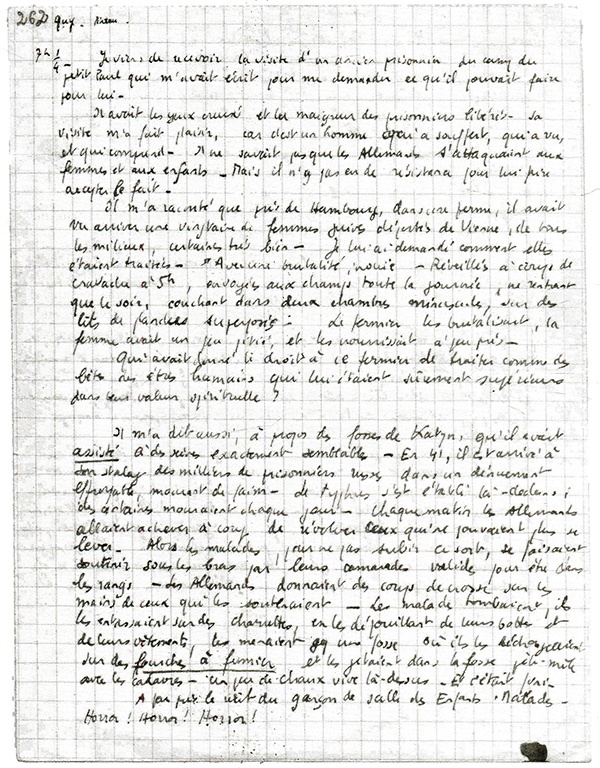 262
7h ¼ Je viens de recevoir la visite d'un ancien prisonnier du camp du
petit Paul qui m'avait écrit pour me demander ce qu'il pouvait faire
pour lui -
Il avait les yeux creux et la maigreur des prisonniers libérés - sa
visite m'a fait plaisir, car c'est un homme qui a souffert, qui a vu
et qui comprend - Il ne savait pas que les Allemands s'attaquaient aux
femmes et aux enfants - Mais il n'y a pas eu de résistance pour lui faire
accepter le fait -
Il m'a raconté que près de Hambourg, dans une ferme, il avait
vu arriver une vingtaine de femmes juives déportées de Vienne, de tous
les milieux, certaines très bien - Je lui ai demandé comment elles
étaient traitées - "Avec une brutalité inouïe - Réveillés à coups de
cravache à 5h, envoyées aux champs toute la journée, ne rentrant
que le soir, couchant dans deux chambres minuscules, sur des
lits de planches superposés. Le fermier les brutalisant, la
femme avait un peu pitié, et les nourrissait à peu près -
Qui avait donné le droit à ce fermier de traiter comme des
bêtes des êtres humains qui lui étaient sûrement supérieurs
dans leur valeur spirituelle ?
Il m'a dit aussi, à propos des fosses de Katyn, qu'il avait
assisté à des scènes exactement semblables - En 41, il est arrivé à
son stalag des milliers de prisonniers russes dans un dénuement
effroyable, mourant de faim - le typhus s'est établi là-dedans ;
des centaines mouraient chaque jour - Chaque matin les Allemands
allaient achever à coup de révolver ceux qui ne pouvaient plus se
lever - Alors les malades, pour ne pas subir ce sort, se faisaient
soutenir sous les bras par leurs camarades valides pour être dans
les rangs - Les Allemands donnaient des coups de crosse sur les
mains de ceux qui les soutenaient - Les malades tombaient, ils
les entassaient sur des charrettes, en les dépouillant de leurs bottes et
de leurs vêtements, les menaient à une fosse où ils les déchargeaient
sur des fourches à fumier et les jetaient dans la fosse pêle-mêle
avec les cadavres - un peu de chaux vive là-dessus - Et c'était fini -
le récit du garçon de salle des Enfants-Malades -
Horror ! Horror ! Horror !